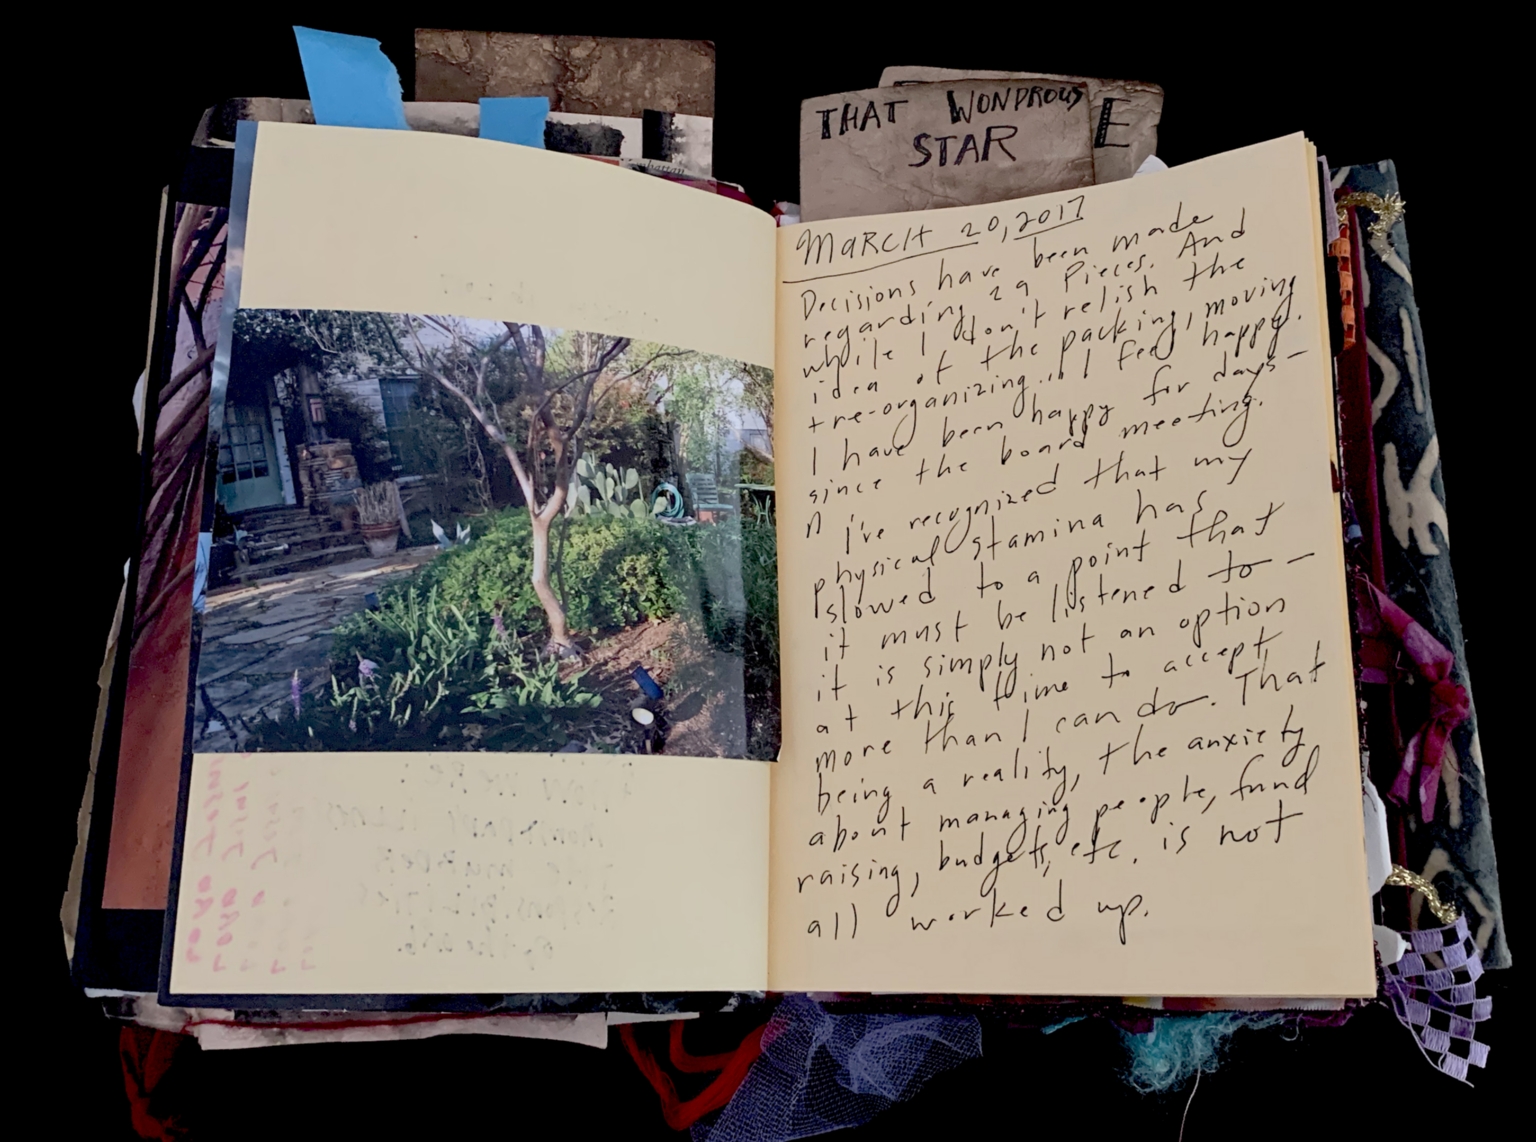 THAT WONDROUS
STAR
E
MARCH 20, 2017
Decisions have been made
regarding 29 Pieces. And
while I don't relish the
idea of the packing, moving
+ re-organizing... I feel happy.
I have been happy for days –
since the board meeting.
I've recognized that my
physical stamina has
slowed to a point that
it must be listened to –
it is simply not an option
at this time to accept
more than I can do. That
being a reality, the anxiety
about managing people, fund
raising, budgets, etc. is not
all worked up.